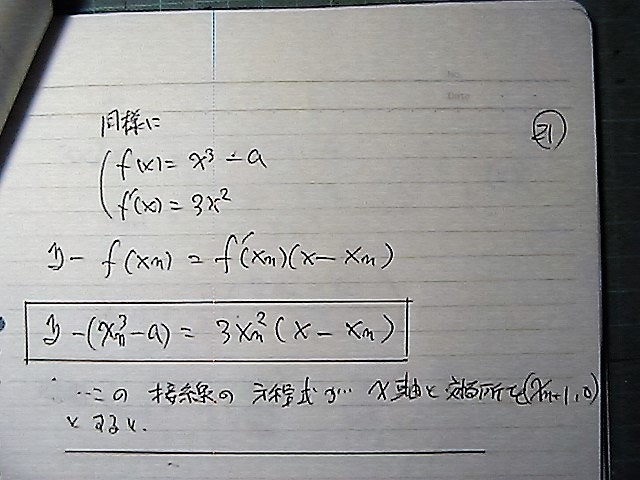 同様に
㉑
f(x) = x³ - a
f'(x) = 3x²
y - f(xn) = f'(xn)(x - xn)
y - (xn³ - a) = 3xn²(x - xn)
この 接線の 方程式が x軸と 交る所を(xn+1, 0)
とすると.